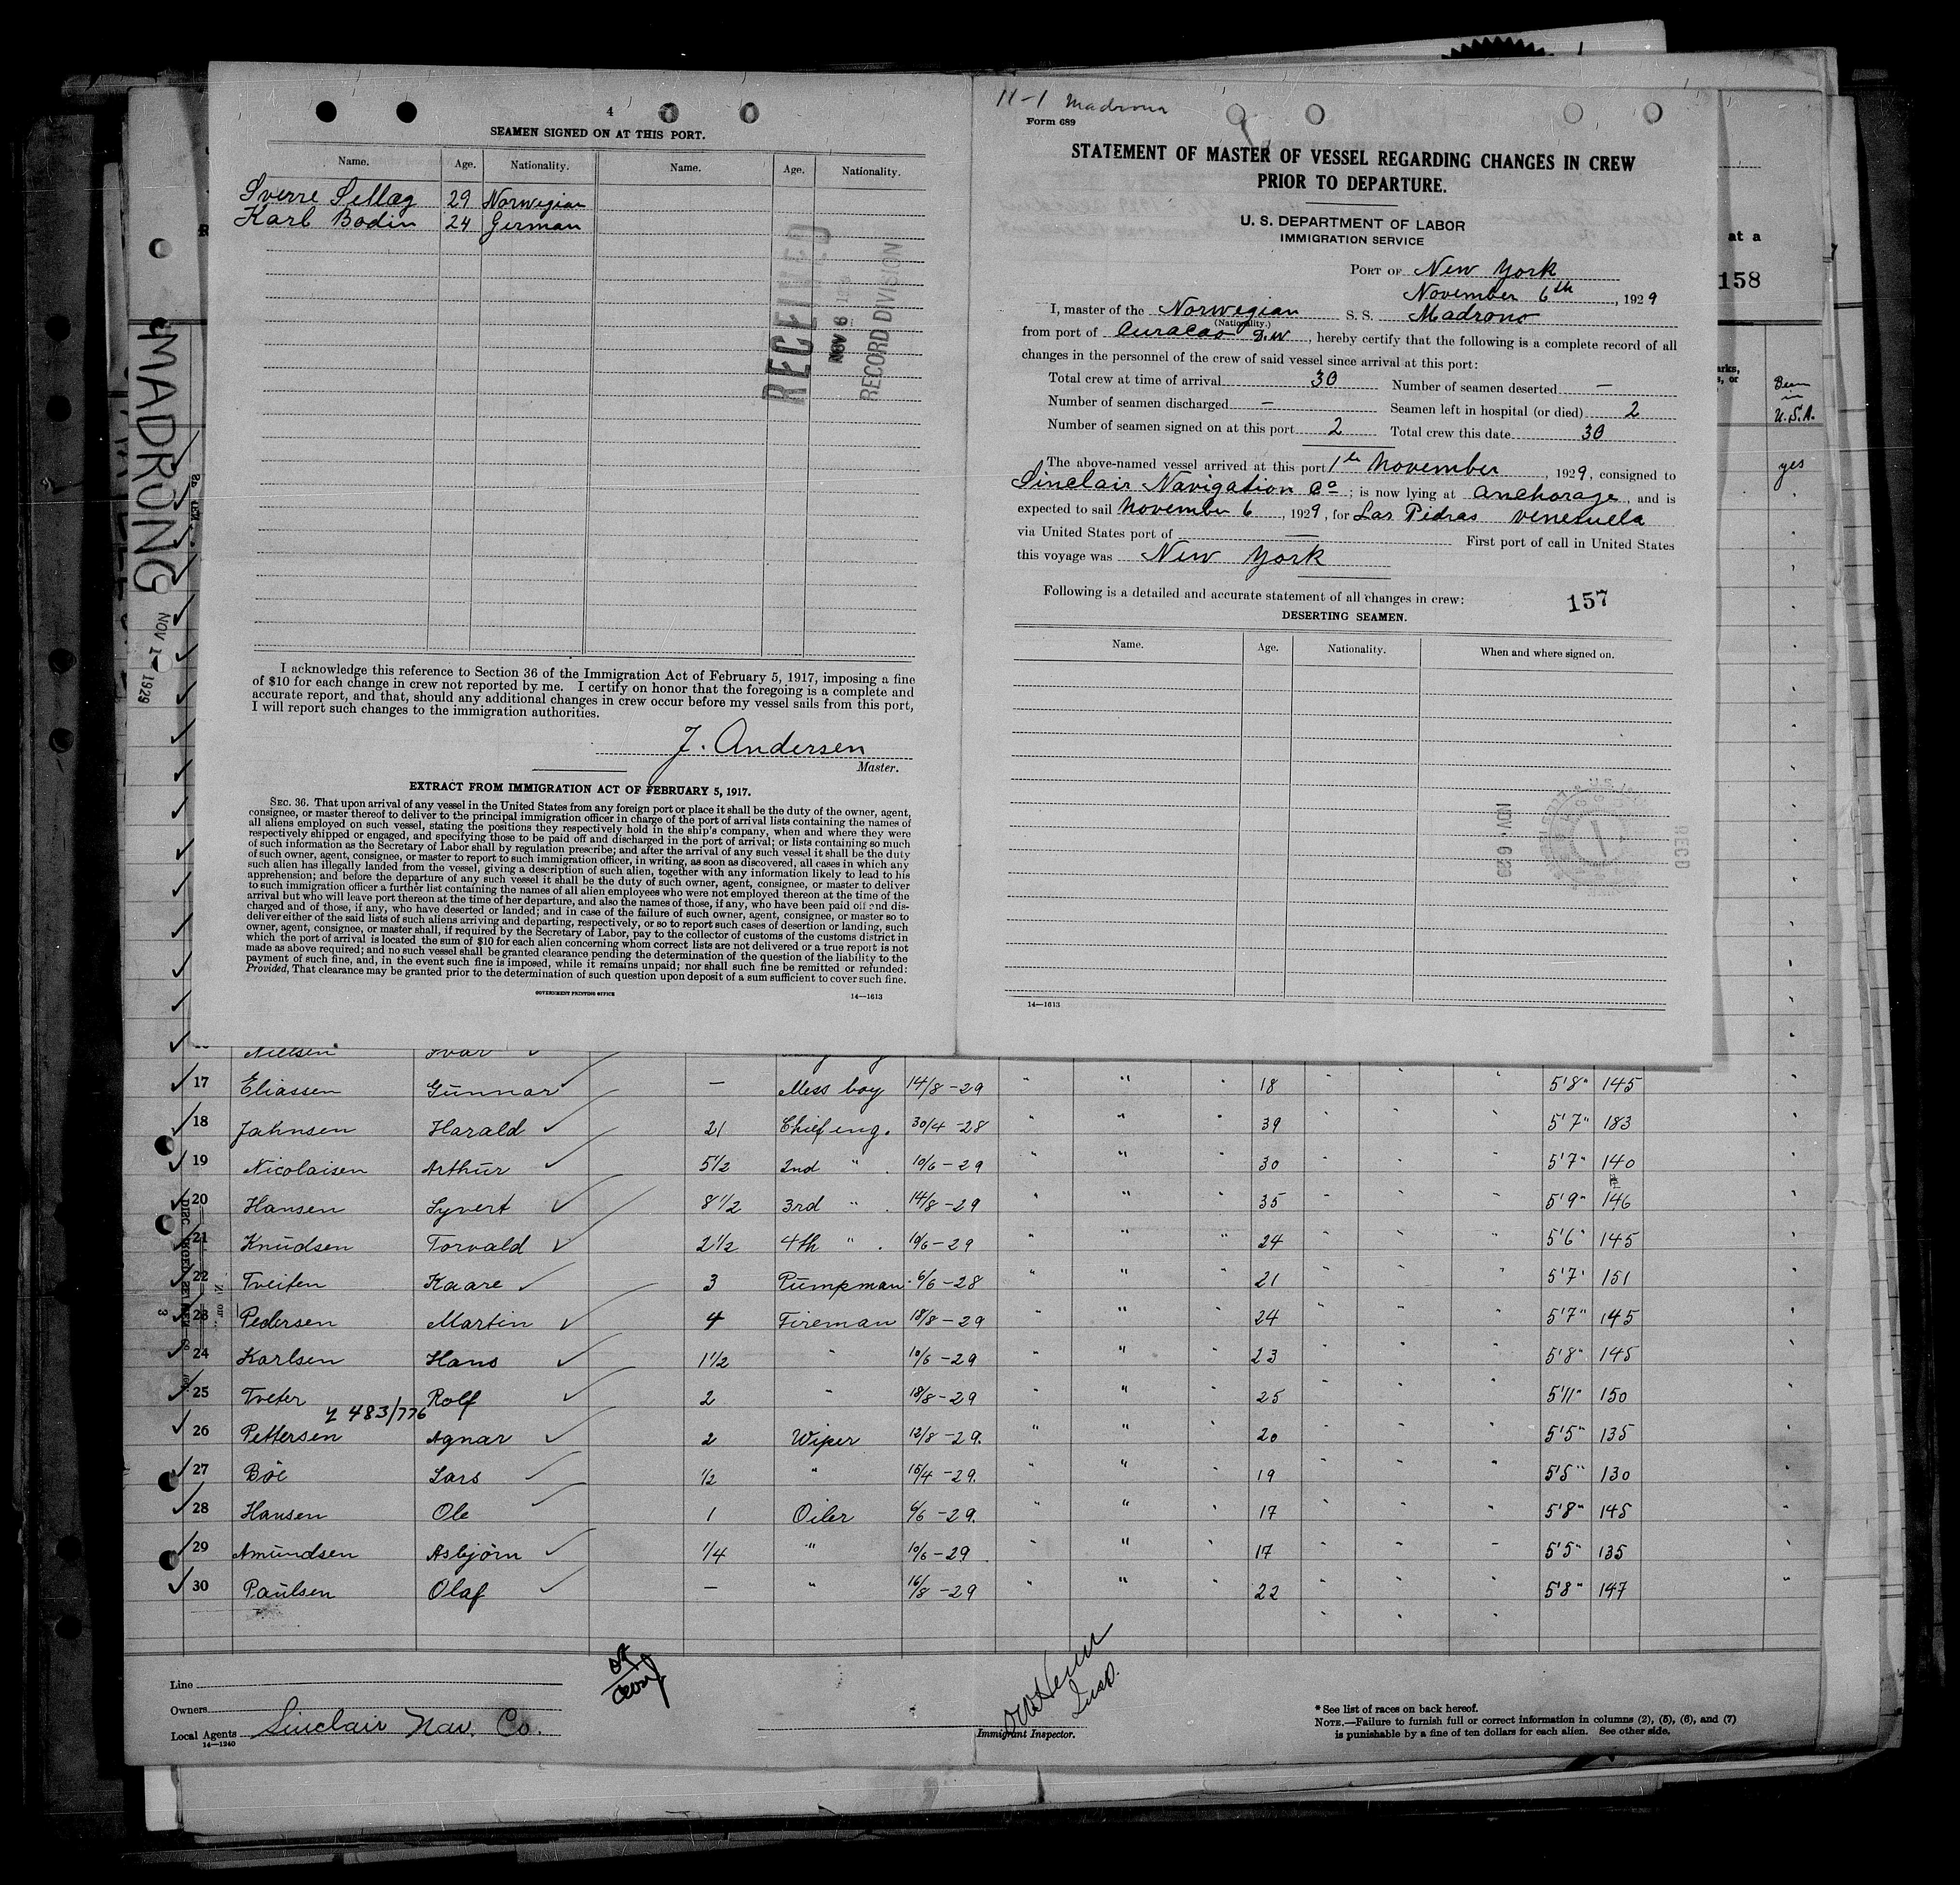 4
SEAMEN SIGNED ON AT THIS PORT.
Name. Age. Nationality. Name. Age. Nationality.
Sverre Sellæg 29 Norwegian
Karl Bodin 24 German
RECEIVED
NOV 6
RECORD DIVISION
I acknowledge this reference to Section 36 of the Immigration Act of February 5, 1917, imposing a fine
of $10 for each change in crew not reported by me. I certify on honor that the foregoing is a complete and
accurate report, and that, should any additional changes in crew occur before my vessel sails from this port,
I will report such changes to the immigration authorities.
J. Andersen
Master.
EXTRACT FROM IMMIGRATION ACT OF FEBRUARY 5, 1917.
SEC. 36. That upon arrival of any vessel in the United States from any foreign port or place it shall be the duty of the owner, agent,
consignee, or master thereof to deliver to the principal immigration officer in charge of the port of arrival lists containing the names of
all aliens employed on such vessel, stating the positions they respectively hold in the ship's company, when and where they were
respectively shipped or engaged, and specifying those to be paid off and discharged in the port of arrival; or lists containing so much
of such information as the Secretary of Labor shall by regulation prescribe; and after the arrival of any such vessel it shall be the duty
of such owner, agent, consignee, or master to report to such immigration officer, in writing, as soon as discovered, all cases in which any
such alien has illegally landed from the vessel, giving a description of such alien, together with any information likely to lead to his
apprehension; and before the departure of any such vessel it shall be the duty of such owner, agent, consignee, or master to deliver
to such immigration officer a further list containing the names of all alien employees who were not employed thereon at the time of the
arrival but who will leave port thereon at the time of her departure, and also the names of those, if any, who have been paid off and dis-
charged and of those, if any, who have deserted or landed; and in case of the failure of such owner, agent, consignee, or master so to
deliver either of the said lists of such aliens arriving and departing, respectively, or so to report such cases of desertion or landing, such
owner, agent, consignee, or master shall, if required by the Secretary of Labor, pay to the collector of customs of the customs district in
which the port of arrival is located the sum of $10 for each alien concerning whom correct lists are not delivered or a true report is not
made as above required; and no such vessel shall be granted clearance pending the determination of the question of the liability to the
payment of such fine, and, in the event such fine is imposed, while it remains unpaid; nor shall such fine be remitted or refunded:
Provided, That clearance may be granted prior to the determination of such question upon deposit of a sum sufficient to cover such fine.
GOVERNMENT PRINTING OFFICE 14—1613
11-1 Madrono
Form 689
STATEMENT OF MASTER OF VESSEL REGARDING CHANGES IN CREW
PRIOR TO DEPARTURE.
U. S. DEPARTMENT OF LABOR
IMMIGRATION SERVICE
PORT OF New York
November 6th, 1929
I, master of the Norwegian S. S. Madrono
(Nationality.)
from port of Curacao D.W, hereby certify that the following is a complete record of all
changes in the personnel of the crew of said vessel since arrival at this port:
Total crew at time of arrival 30 Number of seamen deserted —
Number of seamen discharged — Seamen left in hospital (or died) 2
Number of seamen signed on at this port 2 Total crew this date 30
The above-named vessel arrived at this port 1th November, 1929, consigned to
Sinclair Navigation Co; is now lying at anchorage, and is
expected to sail November 6, 1929, for Las Pidras Venezuela
via United States port of — First port of call in United States
this voyage was New York
Following is a detailed and accurate statement of all changes in crew:
157
DESERTING SEAMEN.
Name. Age. Nationality. When and where signed on.
NOV. 6 29
REC'D
14—1613
at a
158
arks,
s, or
Been
in
U.S.A.
yes
MADRONO
NOV 1 - 1929
Nielsen Ivar
17 Eliassen Gunnar — Mess boy 14/8-29 " " " 18 " " " 5'8" 145 "
18 Jahnsen Harald 21 Chief eng. 30/4-28 " " " 39 " " " 5'7" 183 "
19 Nicolaisen Arthur 5 1/2 2nd " 10/6-29 " " " 30 " " " 5'7" 140 "
20 Hansen Syvert 8 1/2 3rd " 14/8-29 " " " 35 " " " 5'9" 146 "
21 Knudsen Torvald 2 1/2 4th " 10/6-29 " " " 24 " " " 5'6" 145 "
22 Tveiten Kaare 3 Pumpman 6/6-28 " " " 21 " " " 5'7" 151 "
23 Pedersen Martin 4 Fireman 18/8-29 " " " 24 " " " 5'7" 145 "
24 Karlsen Hans 1 1/2 " 10/6-29 " " " 23 " " " 5'8" 145 "
25 Tveter Rolf 2 " 18/8-29 " " " 25 " " " 5'11" 150 "
4 483/776
26 Pettersen Agnar 2 Wiper 12/8-29. " " " 20 " " " 5'5" 135 "
27 Böe Lars 1/2 " 15/4-29. " " " 19 " " " 5'5" 130 "
28 Hansen Ole 1 Oiler 6/6-29. " " " 17 " " " 5'8" 145 "
29 Amundsen Asbjörn 1/4 " 10/6-29 " " " 17 " " " 5'5" 135 "
30 Paulsen Olaf — " 16/8-29 " " " 22 " " " 5'8" 147 "
Line
Owners
Local Agents Sinclair Nav. Co.
14—1240
Insp.
Immigrant Inspector.
* See list of races on back hereof.
NOTE.—Failure to furnish full or correct information in columns (2), (5), (6), and (7)
is punishable by a fine of ten dollars for each alien. See other side.